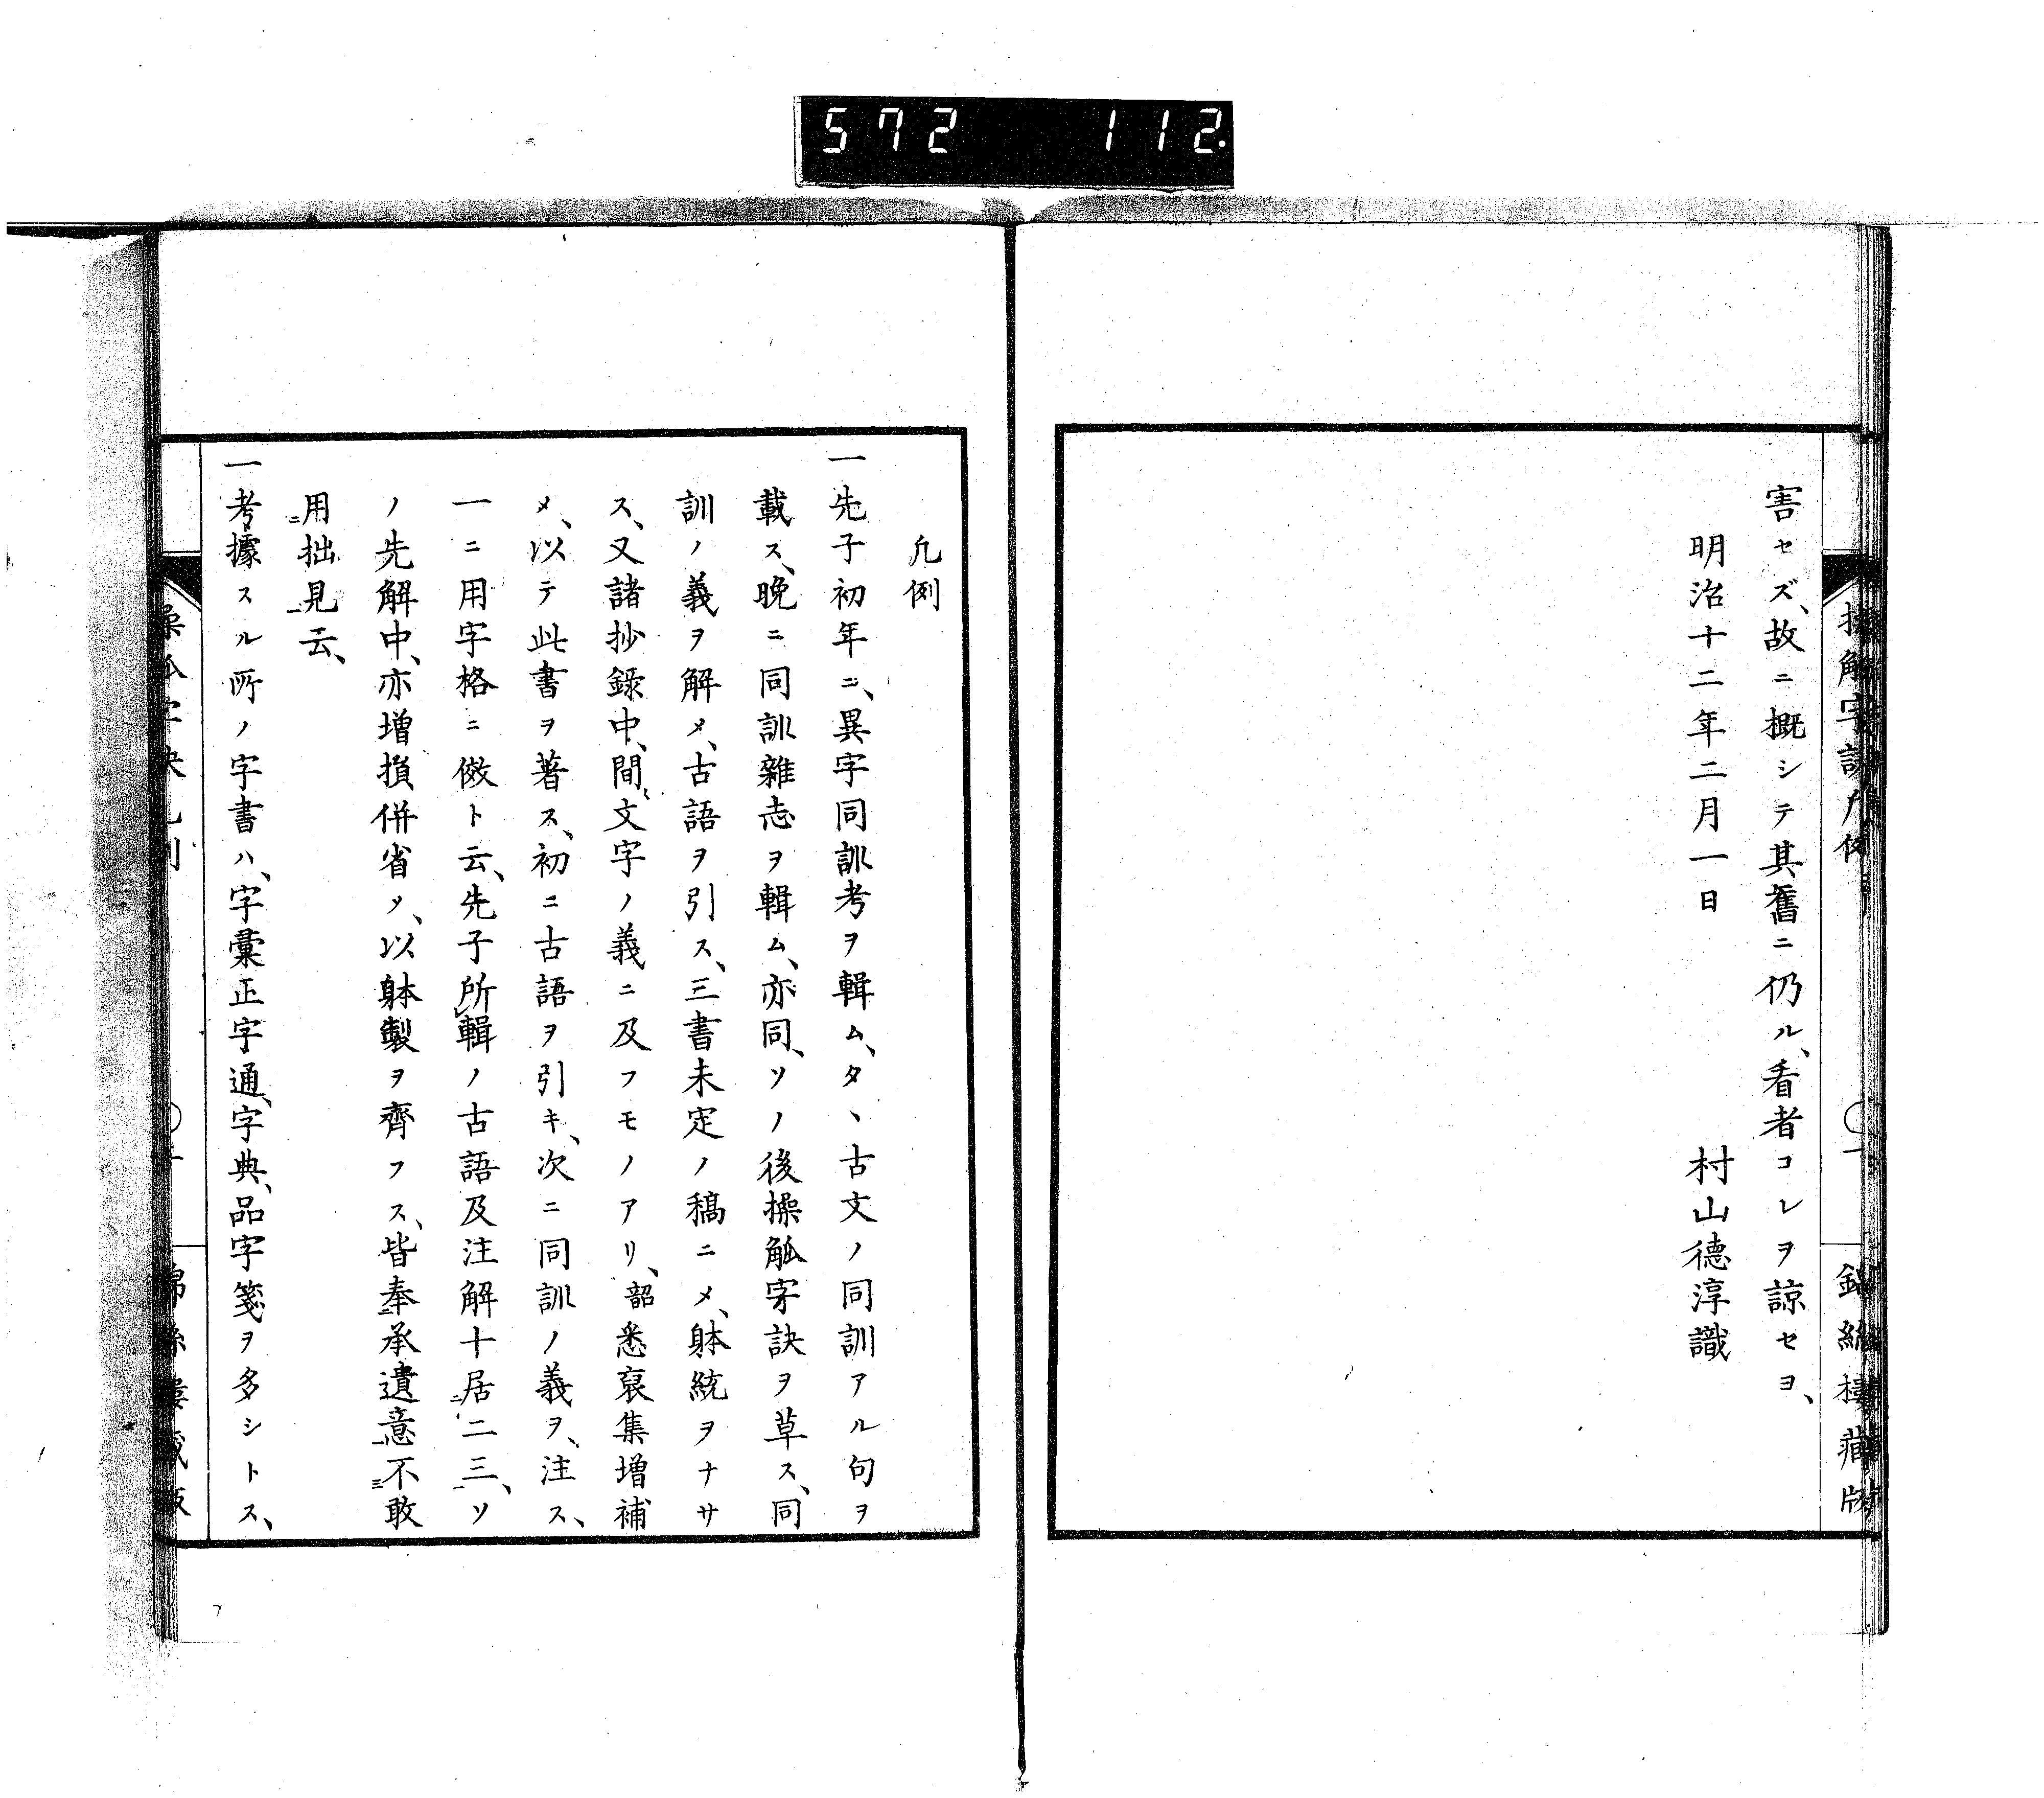 572 112.
害セズ、故ニ概シテ其舊ニ仍ル、看者コレヲ諒セヨ、
明治十二年二月一日 村山德淳識
凡例
一先子初年ニ、異字同訓考ヲ輯ム、タヽ古文ノ同訓アル句ヲ
載ス、晩ニ同訓雜志ヲ輯ム、亦同、ソノ後操觚字訣ヲ草ス、同
訓ノ義ヲ解メ、古語ヲ引ス、三書未定ノ稿ニメ、躰統ヲナサ
ス、又諸抄錄中、間〻文字ノ義ニ及フモノアリ、韶悉裒集增補
メ、以テ此書ヲ著ス、初ニ古語ヲ引キ、次ニ同訓ノ義ヲ、注ス、
一ニ用字格ニ倣ト云、先子所輯ノ古語及注解十居二三、ソ
ノ先解中、亦增損併省ソ、以躰製ヲ齊フス、皆奉承遺意不敢
用拙見云、
一考據スル所ノ字書ハ、字彙正字通、字典、品字箋ヲ多シトス、